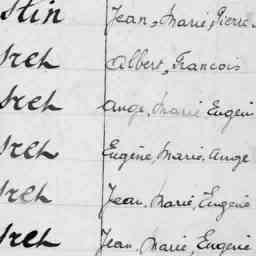 stin Jean, Marie, Pierre.
rch Albert, Francois
rch Ange, Marie Eugèn
rch Eugène, Marie, Ange
rch Jean, Marie, Eugène
rch Jean, Marie, Eugène